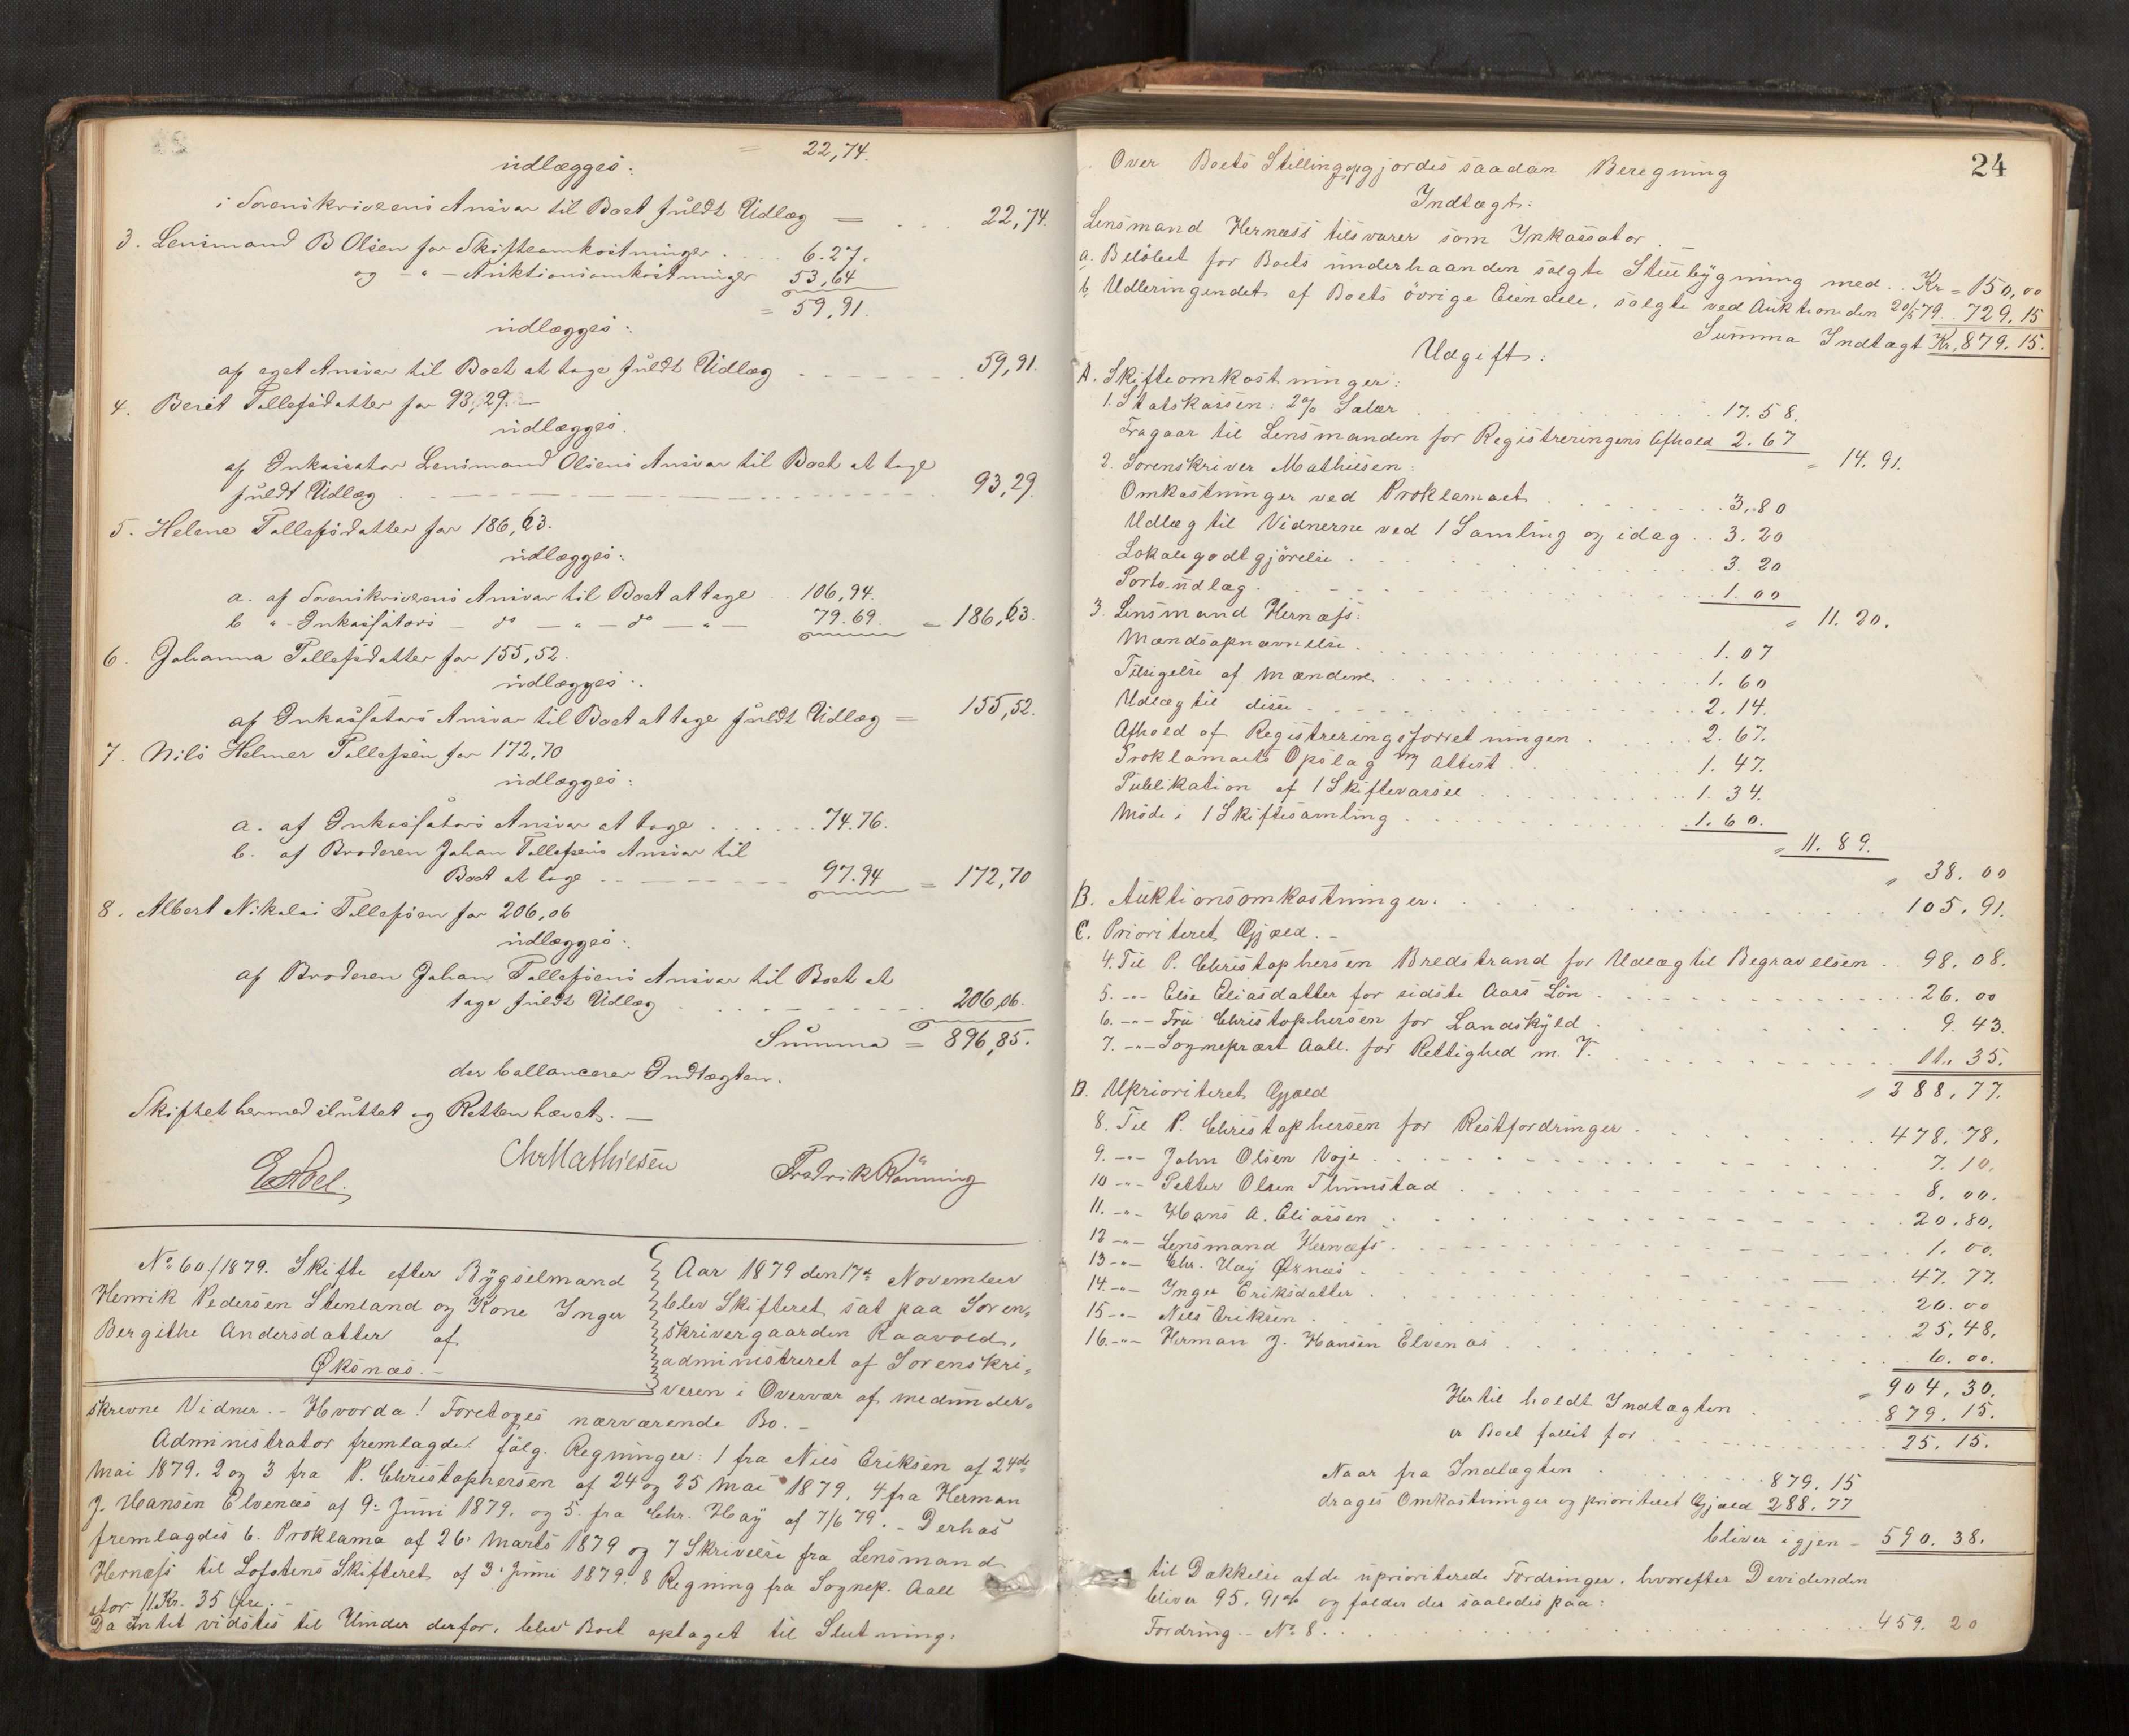 = 22,74.
udlægges:
i Sorenskriverens Ansvar til Boet fuldt Udlæg = . . . . 22,74.
3. Lensmand B Olsen for Skifteomkostninger . . . . 6.27.
og - " - Auktionsomkostninger 53,64
= 59,91.
udlægges:
af eget Ansvar til Boet at tage fuldt Udlæg . . . . 59,91.
4. Berit Tollefsdatter for 93,29. —
udlægges.
af Inkassator Lensmand Olsens Ansvar til Boet at tage
fuldt Udlæg . . . . 93,29.
5. Helene Tollefsdatter for 186,63.
udlægges:
a. af Sorenskriverens Ansvar til Boet at tage . . 106,94.
b " - Inkassators - do - " - do - " - 79.69. = 186,63.
6. Johanna Tollefsdatter for 155,52.
udlægges:
af Inkassators Ansvar til Boet at tage fuldt Udlæg = 155,52.
7. Nils Helmer Tollefsen for 172,70
udlægges:
a. af Inkassators Ansvar at tage . . . . . 74.76.
b. af Broderen Johan Tollefsens Ansvar til
Boet at tage . . . . 97.94 = 172,70
8. Albert Nikolai Tollefsen for 206,06
udlægges:
af Broderen Johan Tollefsens Ansvar til Boet at
tage fuldt Udlæg . . . . 206,06.
Summa = 896,85.
der ballancerer Indtægten.
Skiftet hermed sluttet og Retten hævet. —
Chr Mathiesen Fredrik Rönning
No 60/1879. Skifte efter Bygselmand
Henrik Pedersen Stenland og Kone Inger
Bergithe Andersdatter af
Øksnæs. —
Aar 1879 den 17de November
blev Skifteret sat paa Soren-
skrivergaarden Raavold,
administreret af Sorenskri-
veren i Overvær af medunder-
skrevne Vidner. - Hvorda! Foretoges nærværende Bo. -
Administrator fremlagde følg. Regninger: 1 fra Niels Eriksen af 24de
Mai 1879. 2 og 3 fra P. Christophersen af 24 og 25 Mai 1879, 4 fra Herman
J. Hansen Elvenæs af 9. Juni 1879. og 5. fra Chr. Haÿ af 7/6 79. - Derhos
fremlagdes 6. Proklama af 26. Marts 1879 og 7 Skrivelse fra Lensmand
Hernæss til Lofotens Skifteret af 3. Juni 1879. 8 Regning fra Sognep. Aall
stor 11 Kr. 35 Øre. -
Da intet vidstes til Hinder derfor, blev Boet optaget til Slutning.
24
Over Boets Stilling opgjordes saadan Beregning
Indtægt:
Lensmand Hernæss tilsvarer som Inkassator. —
a. Beløbet for Boets underhaanden solgte Stuebygning med . . Kr = 150,00
b. Udbringendet af Boets övrige Eiendele, solgte ved Auktion den 20/5 79 . . 729,15
Summa Indtægt Kr. 879.15.
Udgift:
A. Skifteomkostninger:
1. Statskassen: 2% Salær . . . . 17.58.
Fragaar til Lensmanden for Registreringens Afhold 2.67
" 14.91.
2. Sorenskriver Mathiesen:
Omkostninger ved Proklamaet . . . . 3.80
Udlæg til Vidnerne ved 1 Samling og idag . . 3.20
Lokalegodtgjörelse . . . . 3.20
Porto-udlæg . . . . 1.00
" 11.20.
3. Lensmand Hernæss:
Mændsopnævnelse . . . . 1.07
Tilsigelse af Mændene . . . . 1.60
Udlæg til disse . . . . 2.14.
Afhold af Registreringsforretningen . . . . 2.67.
Proklamaets Opslag og Attest . . . . 1.47.
Publikation af 1 Skiftevarsel . . . . 1.34.
Möde i 1 Skiftesamling . . . . 1.60.
" 11.89.
" 38.00
B. Auktionsomkostninger. . . . . 105.91.
C. Prioriteret Gjæld. -
4. Til P. Christophersen Bredstrand for Udlæg til Begravelsen . . 98.08.
5. -"- Else Eliasdatter for sidste Aars Lön . . . . 26.00
6. -"- Fru Christophersen for Landskyld . . . . 9.43.
7. -"- Sogneprest Aall. for Rettighed m. V. . . . . 11.35.
" 288.77.
D. Uprioriteret Gjæld
8. Til P. Christophersen for Restfordringer . . . . 478.78.
9. -"- John Olsen Voje . . . . 7.10.
10 -"- Petter Olsen Thunstad . . . . 8.00.
11. -"- Hans A. Eliassen . . . . 20.80.
12 -"- Lensmand Hernæss . . . . 1.00.
13 -"- Chr. Haÿ Øksnæs . . . . 47.77.
14. -"- Inger Eriksdatter . . . . 20.00
15 -"- Niels Eriksen . . . . 25.48.
16. -"- Herman J. Hansen Elvenæs . . . . 6.00.
" 904.30.
Hertil holdt Indtægten . . . . 879.15.
er Boet fallit for . . . . 25.15.
Naar fra Indtægten . . . . 879.15
drages Omkostninger og prioriteret Gjæld 288.77
bliver igjen - 590.38.
til Dækkelse af de uprioriterede Fordringer, hvorefter Devidenden
bliver 95.91% og falder der saaledes paa:
Fordring - No 8. . . . . 459.20